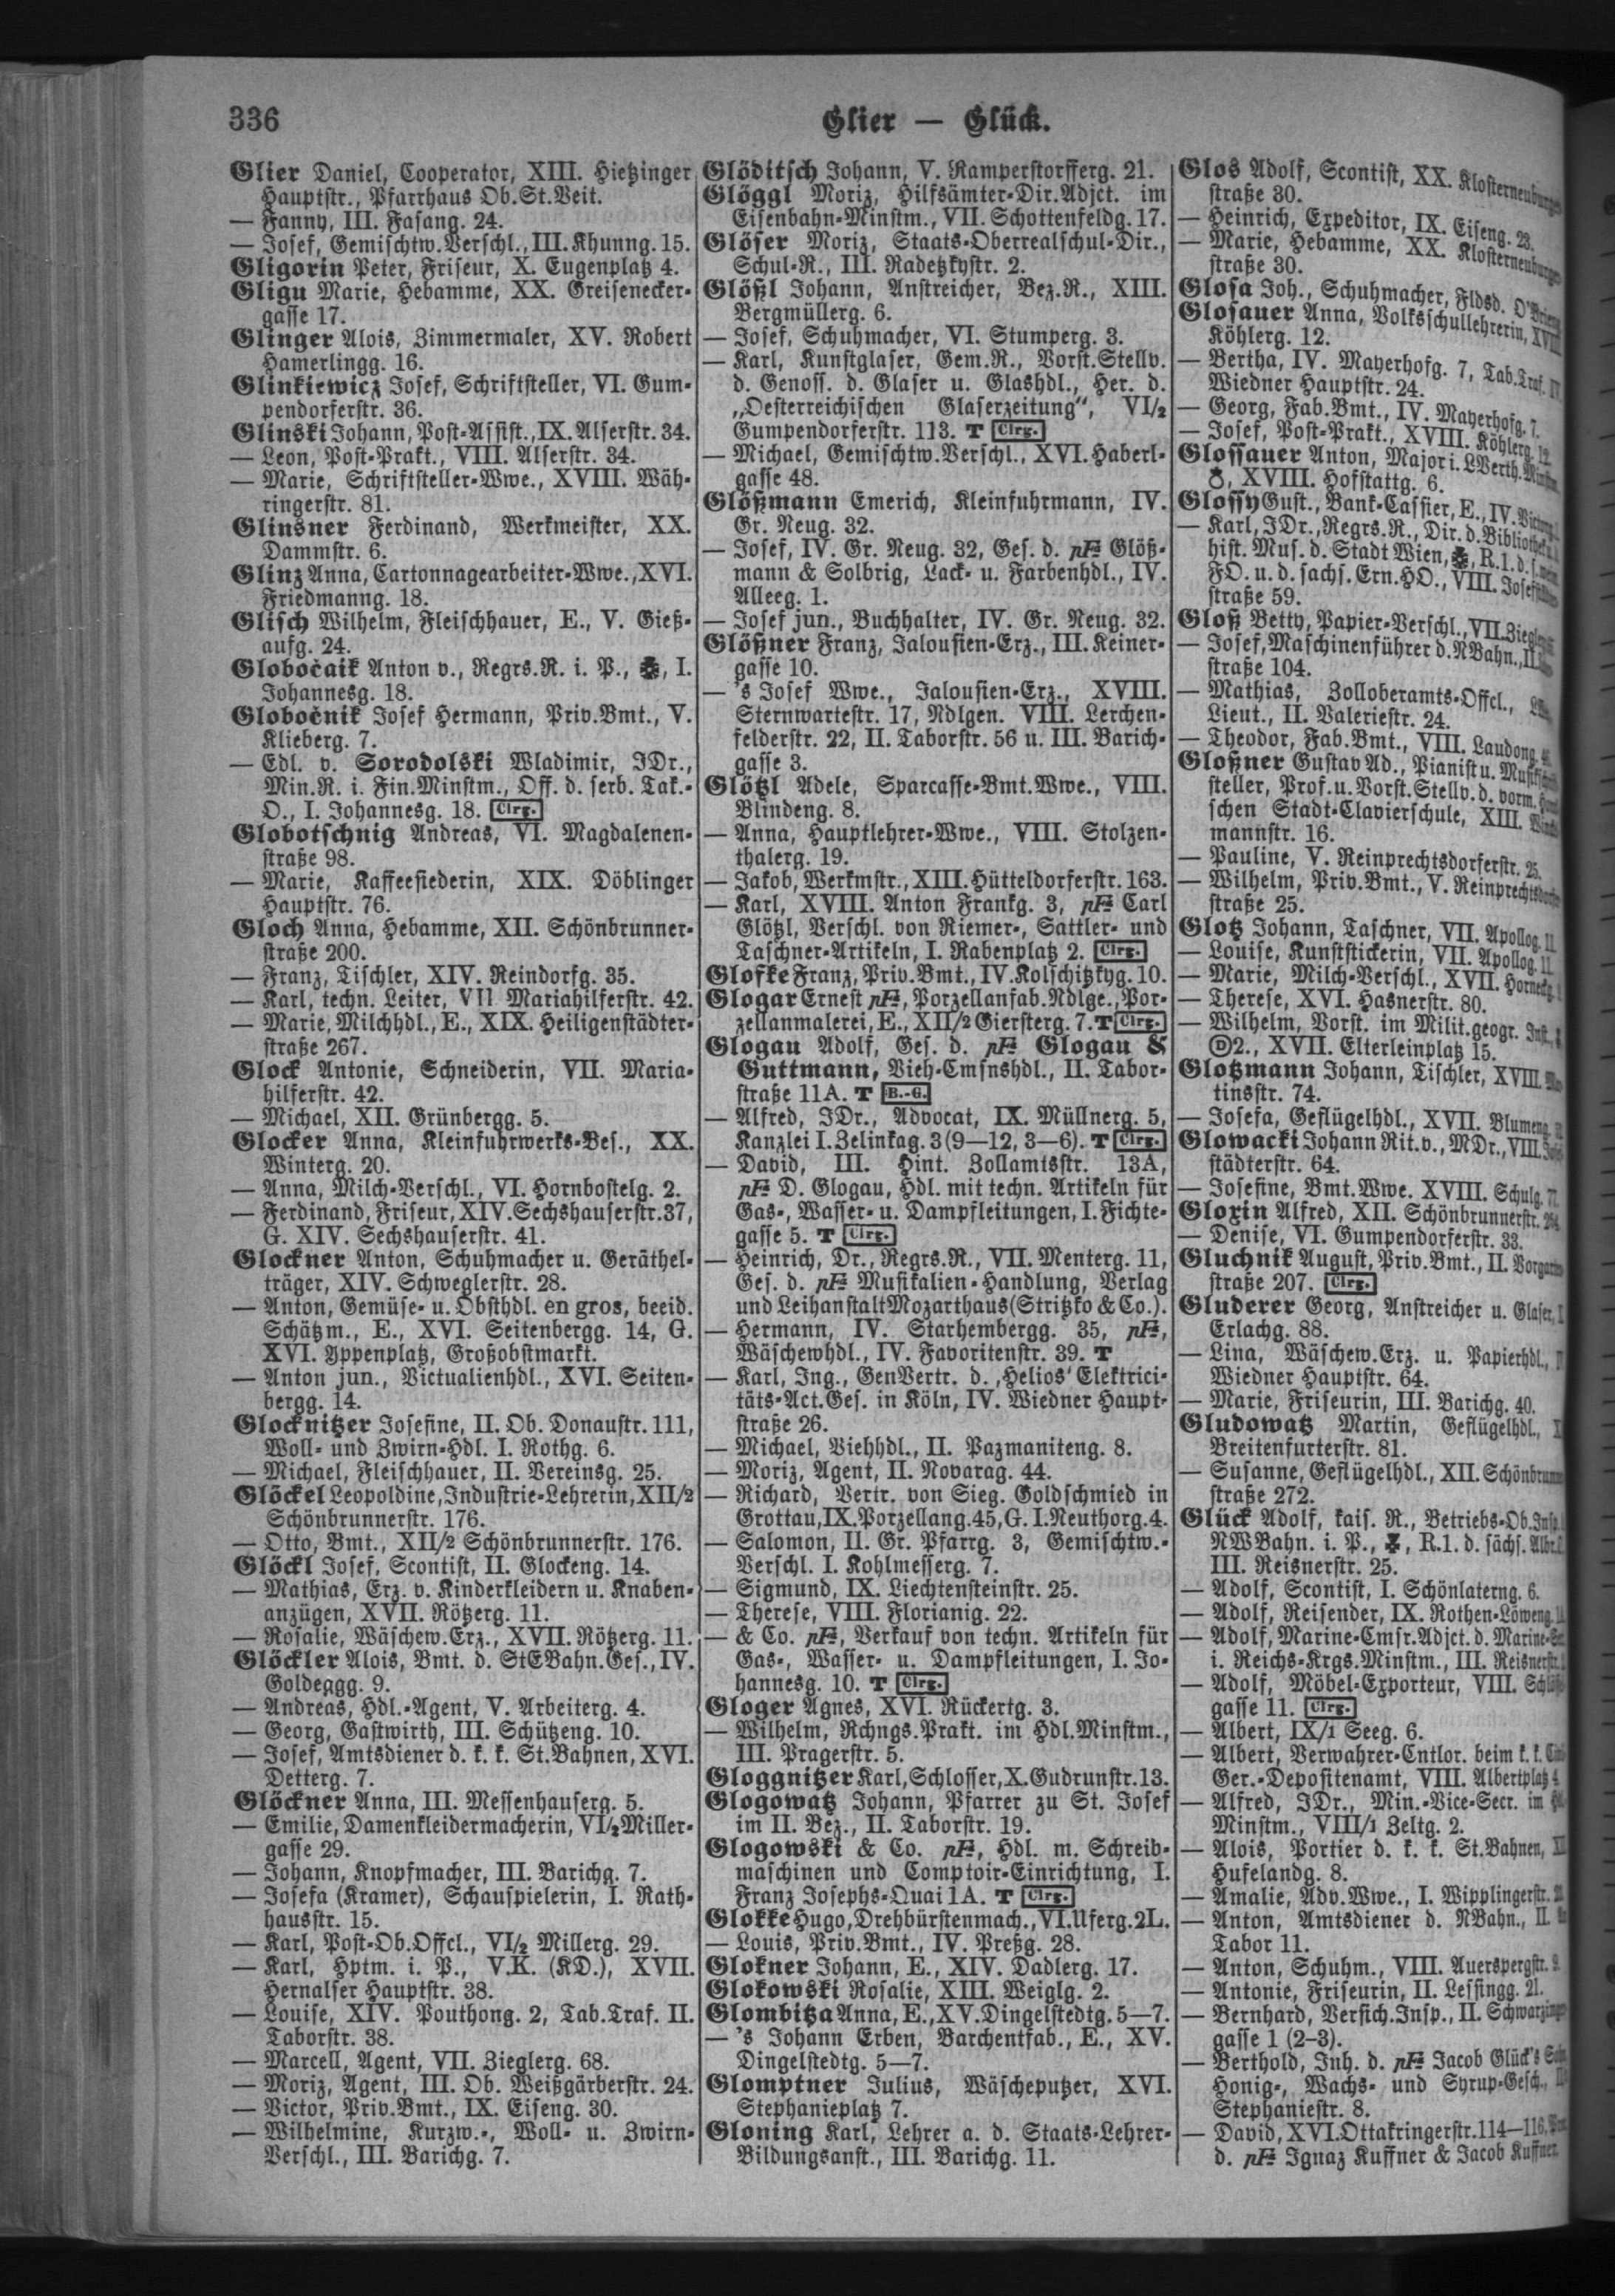 336
Glier — Glück.
Glier Daniel, Cooperator, XIII. Hietzinger
Hauptstr., Pfarrhaus Ob.St.Veit.
— Fanny, III. Fasang. 24.
— Josef, Gemischtw.Verschl., III. Khunng. 15.
Gligorin Peter, Friseur, X. Eugenplatz 4.
Gligu Marie, Hebamme, XX. Greisenecker-
gasse 17.
Glinger Alois, Zimmermaler, XV. Robert
Hamerlingg. 16.
Glinkiewicz Josef, Schriftsteller, VI. Gum-
pendorferstr. 36.
Glinski Johann, Post-Assist., IX. Alserstr. 34.
— Leon, Post-Prakt., VIII. Alserstr. 34.
— Marie, Schriftsteller-Wwe., XVIII. Wäh-
ringerstr. 81.
Glinsner Ferdinand, Werkmeister, XX.
Dammstr. 6.
Glinz Anna, Cartonnagearbeiter-Wwe., XVI.
Friedmanng. 18.
Glisch Wilhelm, Fleischhauer, E., V. Gieß-
aufg. 24.
Globočaik Anton v., Regrs.R. i. P., I.
Johannesg. 18.
Globočnik Josef Hermann, Priv.Bmt., V.
Klieberg. 7.
— Edl. v. Sorodolski Wladimir, JDr.,
Min.R. i. Fin.Minstm., Off. d. serb. Tak.-
O., I. Johannesg. 18. Clrg.
Globotschnig Andreas, VI. Magdalenen-
straße 98.
— Marie, Kaffeesiederin, XIX. Döblinger
Hauptstr. 76.
Gloch Anna, Hebamme, XII. Schönbrunner-
straße 200.
— Franz, Tischler, XIV. Reindorfg. 35.
— Karl, techn. Leiter, VII Mariahilferstr. 42.
— Marie, Milchhdl., E., XIX. Heiligenstädter-
straße 267.
Glock Antonie, Schneiderin, VII. Maria-
hilferstr. 42.
— Michael, XII. Grünbergg. 5.
Glocker Anna, Kleinfuhrwerks-Bes., XX.
Winterg. 20.
— Anna, Milch-Verschl., VI. Hornbostelg. 2.
— Ferdinand, Friseur, XIV. Sechshauserstr. 37,
G. XIV. Sechshauserstr. 41.
Glockner Anton, Schuhmacher u. Geräthel-
träger, XIV. Schweglerstr. 28.
— Anton, Gemüse- u. Obsthdl. en gros, beeid.
Schätzm., E., XVI. Seitenbergg. 14, G.
XVI. Yppenplatz, Großobstmarkt.
— Anton jun., Victualienhdl., XVI. Seiten-
bergg. 14.
Glocknitzer Josefine, II. Ob. Donaustr. 111,
Woll- und Zwirn-Hdl. I. Rothg. 6.
— Michael, Fleischhauer, II. Vereinsg. 25.
Glöckel Leopoldine, Industrie-Lehrerin, XII/2
Schönbrunnerstr. 176.
— Otto, Bmt., XII/2 Schönbrunnerstr. 176.
Glöckl Josef, Scontist, II. Glockeng. 14.
— Mathias, Erz. v. Kinderkleidern u. Knaben-
anzügen, XVII. Rötzerg. 11.
— Rosalie, Wäschew.Erz., XVII. Rötzerg. 11.
Glöckler Alois, Bmt. d. StEBahn.Ges., IV.
Goldeggg. 9.
— Andreas, Hdl.-Agent, V. Arbeiterg. 4.
— Georg, Gastwirth, III. Schützeng. 10.
— Josef, Amtsdiener d. k. k. St.Bahnen, XVI.
Detterg. 7.
Glöckner Anna, III. Messenhauserg. 5.
— Emilie, Damenkleidermacherin, VI/2 Miller-
gasse 29.
— Johann, Knopfmacher, III. Barichg. 7.
— Josefa (Kramer), Schauspielerin, I. Rath-
hausstr. 15.
— Karl, Post-Ob.Offcl., VI/2 Millerg. 29.
— Karl, Hptm. i. P., V.K. (KD.), XVII.
Hernalser Hauptstr. 38.
— Louise, XIV. Pouthong. 2, Tab.Traf. II.
Taborstr. 38.
— Marcell, Agent, VII. Zieglerg. 68.
— Moriz, Agent, III. Ob. Weißgärberstr. 24.
— Victor, Priv.Bmt., IX. Eiseng. 30.
— Wilhelmine, Kurzw.-, Woll- u. Zwirn-
Verschl., III. Barichg. 7.
Glöditsch Johann, V. Ramperstorfferg. 21.
Glöggl Moriz, Hilfsämter-Dir.Adjct. im
Eisenbahn-Minstm., VII. Schottenfeldg. 17.
Glöser Moriz, Staats-Oberrealschul-Dir.,
Schul-R., III. Radetzkystr. 2.
Glößl Johann, Anstreicher, Bez.R., XIII.
Bergmüllerg. 6.
— Josef, Schuhmacher, VI. Stumperg. 3.
— Karl, Kunstglaser, Gem.R., Vorst.Stellv.
d. Genoss. d. Glaser u. Glashdl., Her. d.
„Oesterreichischen Glaserzeitung“, VI/2
Gumpendorferstr. 113. T Clrg.
— Michael, Gemischtw.Verschl., XVI. Haberl-
gasse 48.
Glößmann Emerich, Kleinfuhrmann, IV.
Gr. Neug. 32.
— Josef, IV. Gr. Neug. 32, Ges. d. pF Glöß-
mann & Solbrig, Lack- u. Farbenhdl., IV.
Alleeg. 1.
— Josef jun., Buchhalter, IV. Gr. Neug. 32.
Glößner Franz, Jalousien-Erz., III. Keiner-
gasse 10.
— 's Josef Wwe., Jalousien-Erz., XVIII.
Sternwartestr. 17, Ndlgen. VIII. Lerchen-
felderstr. 22, II. Taborstr. 56 u. III. Barich-
gasse 3.
Glötzl Adele, Sparcasse-Bmt.Wwe., VIII.
Blindeng. 8.
— Anna, Hauptlehrer-Wwe., VIII. Stolzen-
thalerg. 19.
— Jakob, Werkmstr., XIII. Hütteldorferstr. 163.
— Karl, XVIII. Anton Frankg. 3, pF Carl
Glötzl, Verschl. von Riemer-, Sattler- und
Taschner-Artikeln, I. Rabenplatz 2. Clrg.
Glofke Franz, Priv.Bmt., IV. Kolschitzkyg. 10.
Glogar Ernest pF, Porzellanfab.Ndlge., Por-
zellanmalerei, E., XII/2 Giersterg. 7. T Clrg.
Glogau Adolf, Ges. d. pF Glogau &
Guttmann, Vieh-Cmsnshdl., II. Tabor-
straße 11A. T B.-G.
— Alfred, JDr., Advocat, IX. Müllnerg. 5,
Kanzlei I. Zelinkag. 3 (9—12, 3—6). T Clrg.
— David, III. Hint. Zollamtsstr. 13A,
pF D. Glogau, Hdl. mit techn. Artikeln für
Gas-, Wasser- u. Dampfleitungen, I. Fichte-
gasse 5. T Clrg.
— Heinrich, Dr., Regrs.R., VII. Menterg. 11,
Ges. d. pF Musikalien-Handlung, Verlag
und Leihanstalt Mozarthaus (Stritzko & Co.).
— Hermann, IV. Starhembergg. 35, pF,
Wäschewhdl., IV. Favoritenstr. 39. T
— Karl, Ing., GenVertr. d. ‚Helios‘ Elektrici-
täts-Act.Ges. in Köln, IV. Wiedner Haupt-
straße 26.
— Michael, Viehhdl., II. Pazmaniteng. 8.
— Moriz, Agent, II. Novarag. 44.
— Richard, Vertr. von Sieg. Goldschmied in
Grottau, IX. Porzellang. 45, G. I. Neuthorg. 4.
— Salomon, II. Gr. Pfarrg. 3, Gemischtw.-
Verschl. I. Kohlmesserg. 7.
— Sigmund, IX. Liechtensteinstr. 25.
— Therese, VIII. Florianig. 22.
— & Co. pF, Verkauf von techn. Artikeln für
Gas-, Wasser- u. Dampfleitungen, I. Jo-
hannesg. 10. T Clrg.
Gloger Agnes, XVI. Rückertg. 3.
— Wilhelm, Rchngs.Prakt. im Hdl.Minstm.,
III. Pragerstr. 5.
Gloggnitzer Karl, Schlosser, X. Gudrunstr. 13.
Glogowatz Johann, Pfarrer zu St. Josef
im II. Bez., II. Taborstr. 19.
Glogowski & Co. pF, Hdl. m. Schreib-
maschinen und Comptoir-Einrichtung, I.
Franz Josephs-Quai 1A. T Clrg.
Glokke Hugo, Drehbürstenmach., VI. Uferg. 2L.
— Louis, Priv.Bmt., IV. Preßg. 28.
Glokner Johann, E., XIV. Dadlerg. 17.
Glokowski Rosalie, XIII. Weiglg. 2.
Glombitza Anna, E., XV. Dingelstedtg. 5—7.
— 's Johann Erben, Barchentfab., E., XV.
Dingelstedtg. 5—7.
Glomptner Julius, Wäscheputzer, XVI.
Stephanieplatz 7.
Gloning Karl, Lehrer a. d. Staats-Lehrer-
Bildungsanst., III. Barichg. 11.
Glos Adolf, Scontist, XX. Klosterneuburger
straße 30.
— Heinrich, Expeditor, IX. Eiseng. 23.
— Marie, Hebamme, XX. Klosterneuburger
straße 30.
Glosa Joh., Schuhmacher, Fldsd.
Glosauer Anna, Volksschullehrerin, XVIII
Köhlerg. 12.
— Bertha, IV. Mayerhofg. 7, Tab.Traf. IV
Wiedner Hauptstr. 24.
— Georg, Fab.Bmt., IV. Mayerhofg. 7.
— Josef, Post-Prakt., XVIII. Köhlerg. 12.
Glossauer Anton, Major i. LVerth.
XVIII. Hofstattg. 6.
Glossy Gust., Bank-Cassier, E., IV.
— Karl, JDr., Regrs.R., Dir. d. Bibliothek
hist. Mus. d. Stadt Wien, R.1. d.
FO. u. d. sächs. Ern.HO., VIII.
straße 59.
Gloß Betty, Papier-Verschl., VII.
— Josef, Maschinenführer d. NBahn., II.
straße 104.
— Mathias, Zolloberamts-Offcl.,
Lieut., II. Valeriestr. 24.
— Theodor, Fab.Bmt., VIII. Laudong.
Gloßner Gustav Ad., Pianist u.
steller, Prof. u. Vorst.Stellv. d. vorm.
schen Stadt-Clavierschule, XIII.
mannstr. 16.
— Pauline, V. Reinprechtsdorferstr. 25.
— Wilhelm, Priv.Bmt., V. Reinprechtsdorfer
straße 25.
Glotz Johann, Taschner, VII. Apollog. 11.
— Louise, Kunststickerin, VII. Apollog. 11.
— Marie, Milch-Verschl., XVII.
— Therese, XVI. Hasnerstr. 80.
— Wilhelm, Vorst. im Milit.geogr. Inst.,
D2., XVII. Elterleinplatz 15.
Glotzmann Johann, Tischler, XVIII.
tinsstr. 74.
— Josefa, Geflügelhdl., XVII. Blumeng.
Glowacki Johann Rit. v., MDr., VIII.
städterstr. 64.
— Josefine, Bmt.Wwe. XVIII. Schulg. 77.
Gloxin Alfred, XII. Schönbrunnerstr. 264.
— Denise, VI. Gumpendorferstr. 33.
Gluchnik August, Priv.Bmt., II.
straße 207. Clrg.
Gluderer Georg, Anstreicher u. Glaser,
Erlachg. 88.
— Lina, Wäschew.Erz. u. Papierhdl.,
Wiedner Hauptstr. 64.
— Marie, Friseurin, III. Barichg. 40.
Gludowatz Martin, Geflügelhdl.,
Breitenfurterstr. 81.
— Susanne, Geflügelhdl., XII. Schönbrunn
straße 272.
Glück Adolf, kais. R., Betriebs-Ob.Insp.
NWBahn. i. P., R.1. d. sächs.
III. Reisnerstr. 25.
— Adolf, Scontist, I. Schönlaterng. 6.
— Adolf, Reisender, IX. Rothen-Löweng.
— Adolf, Marine-Cmsr.Adjct. d. Marine-
i. Reichs-Krgs.Minstm., III. Reisnerstr.
— Adolf, Möbel-Exporteur, VIII.
gasse 11. Clrg.
— Albert, IX/1 Seeg. 6.
— Albert, Verwahrer-Cntlor. beim k. k.
Ger.-Depositenamt, VIII. Albertplatz 4.
— Alfred, JDr., Min.-Vice-Secr. im
Minstm., VIII/1 Zeltg. 2.
— Alois, Portier d. k. k. St.Bahnen,
Hufelandg. 8.
— Amalie, Adv.Wwe., I. Wipplingerstr.
— Anton, Amtsdiener d. NBahn., II.
Tabor 11.
— Anton, Schuhm., VIII. Auerspergstr. 9.
— Antonie, Friseurin, II. Lessingg. 21.
— Bernhard, Versich.Insp., II.
gasse 1 (2–3).
— Berthold, Inh. d. pF Jacob Glück's
Honig-, Wachs- und Syrup-Gesch.,
Stephaniestr. 8.
— David, XVI. Ottakringerstr. 114—116,
d. pF Ignaz Kuffner & Jacob Kuffner